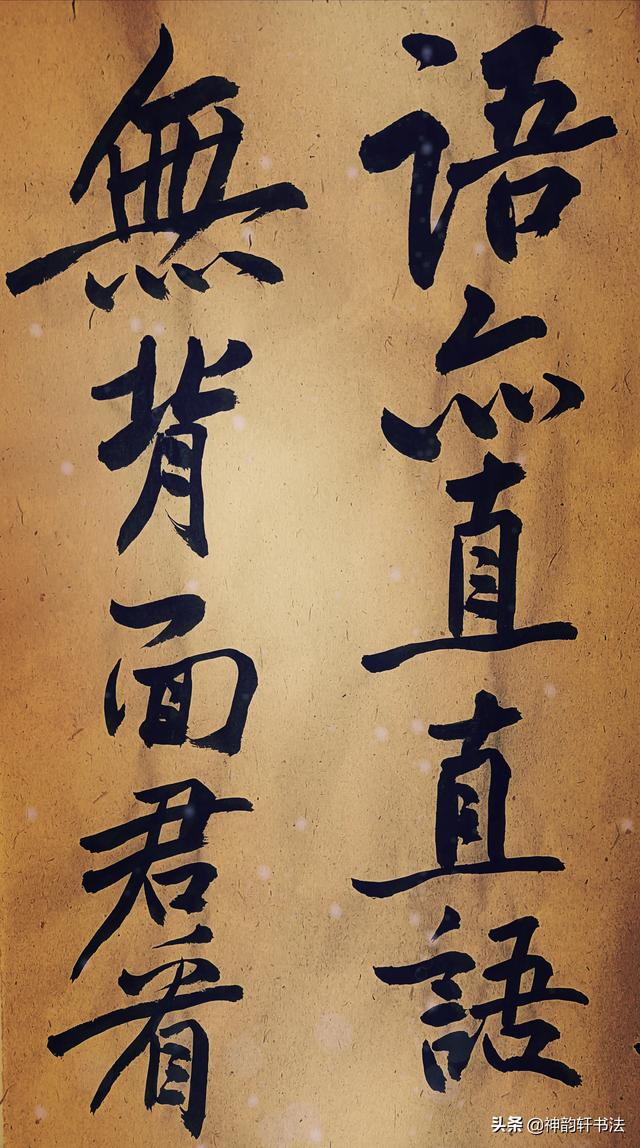 語亦直直語
無背面君看
头条 @神韵轩书法